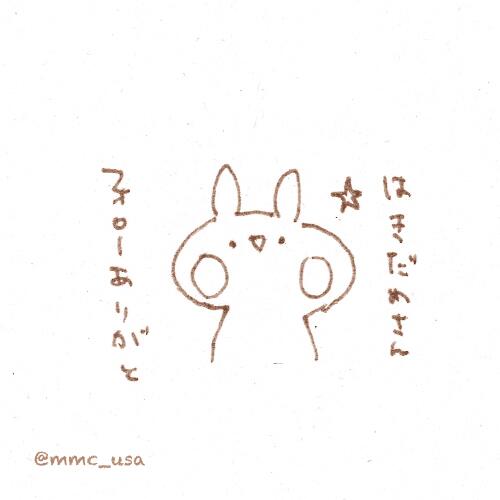 はまだあさん
フォローありがと
@mmc_usa